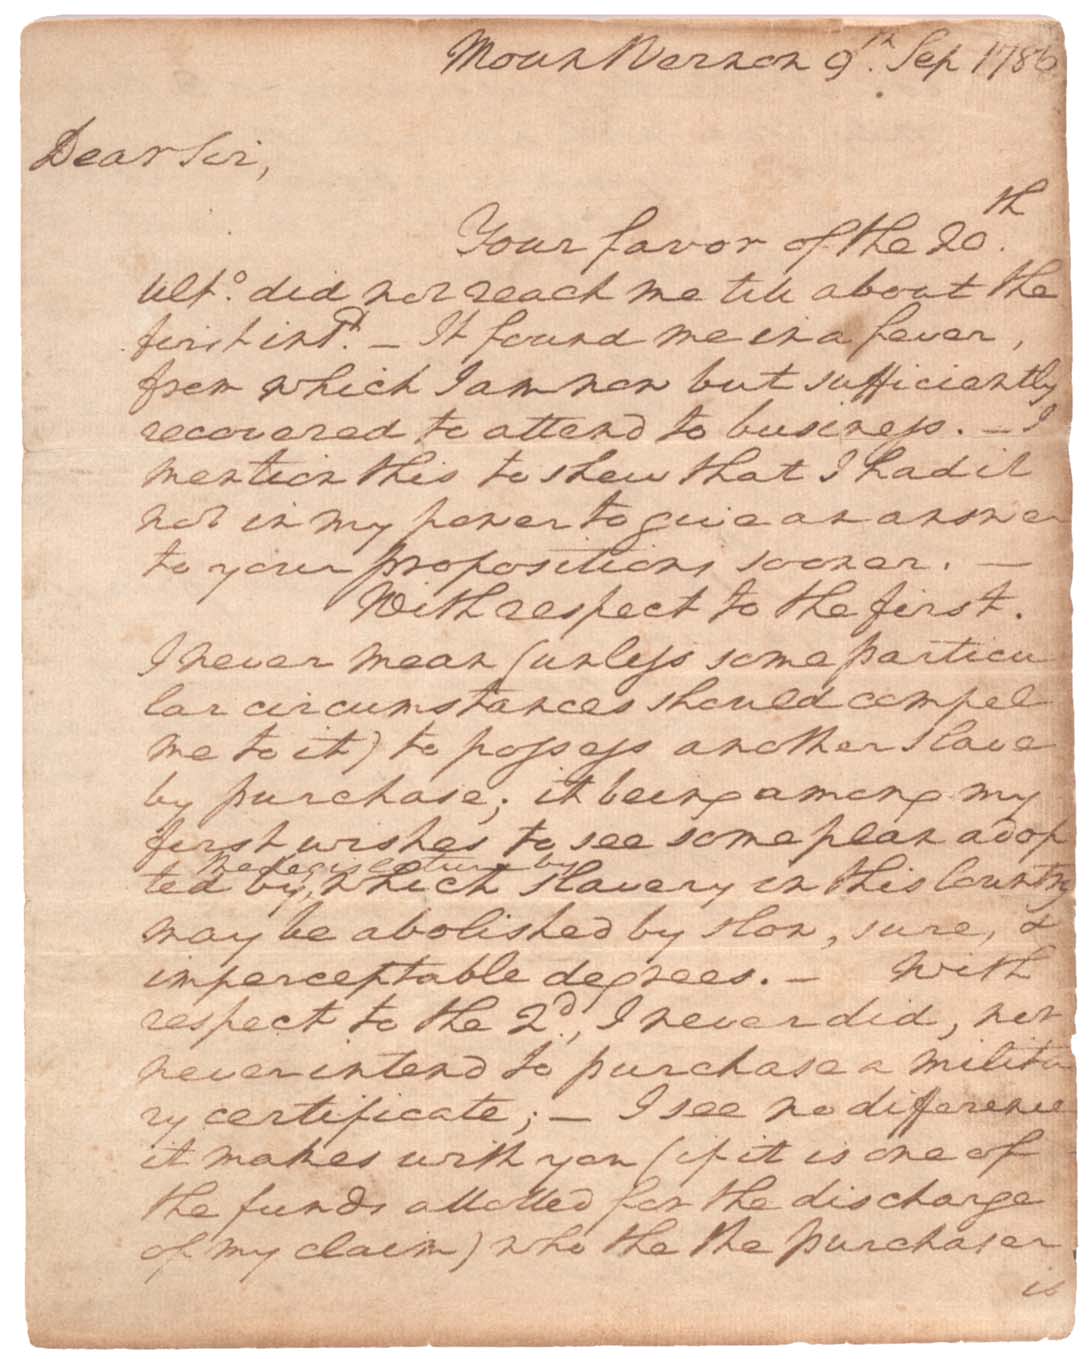 Mount Vernon 9th. Sep 1786
Dear Sir,
Your favor of the 20th.
Ulto. did not reach me till about the
first inst. – It found me in a fever,
from which I am now but sufficiently
recovered to attend to business. – I
mention this to shew that I had it
not in my power to give an answer
to your propositions sooner. –
With respect to the first.
I never mean (unless some particu
lar circumstances should compel
me to it) to possess another slave
by purchase; it being among my
first wishes to see some plan adop
the Legislature by
ted by, which slavery in this Country
may be abolished by slow, sure, &
imperceptable degrees. – With
respect to the 2d., I never did, nor
never intend to purchase a milita
ry certificate; – I see no difference
it makes with you (if it is one of
the funds allotted for the discharge
of my claim) who the the purchaser
is